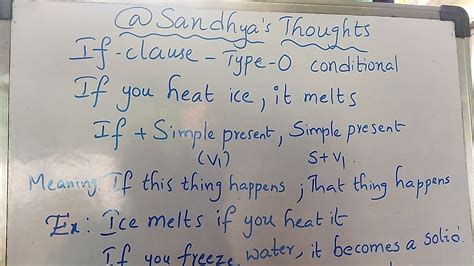 @Sandhya's Thoughts
If-clause - Type-0 conditional
If you heat ice, it melts
If + Simple present, Simple present
(V1) S+V1.
Meaning: If this thing happens, That thing happens
Ex: Ice melts if you heat it
If you freeze water, it becomes a solid